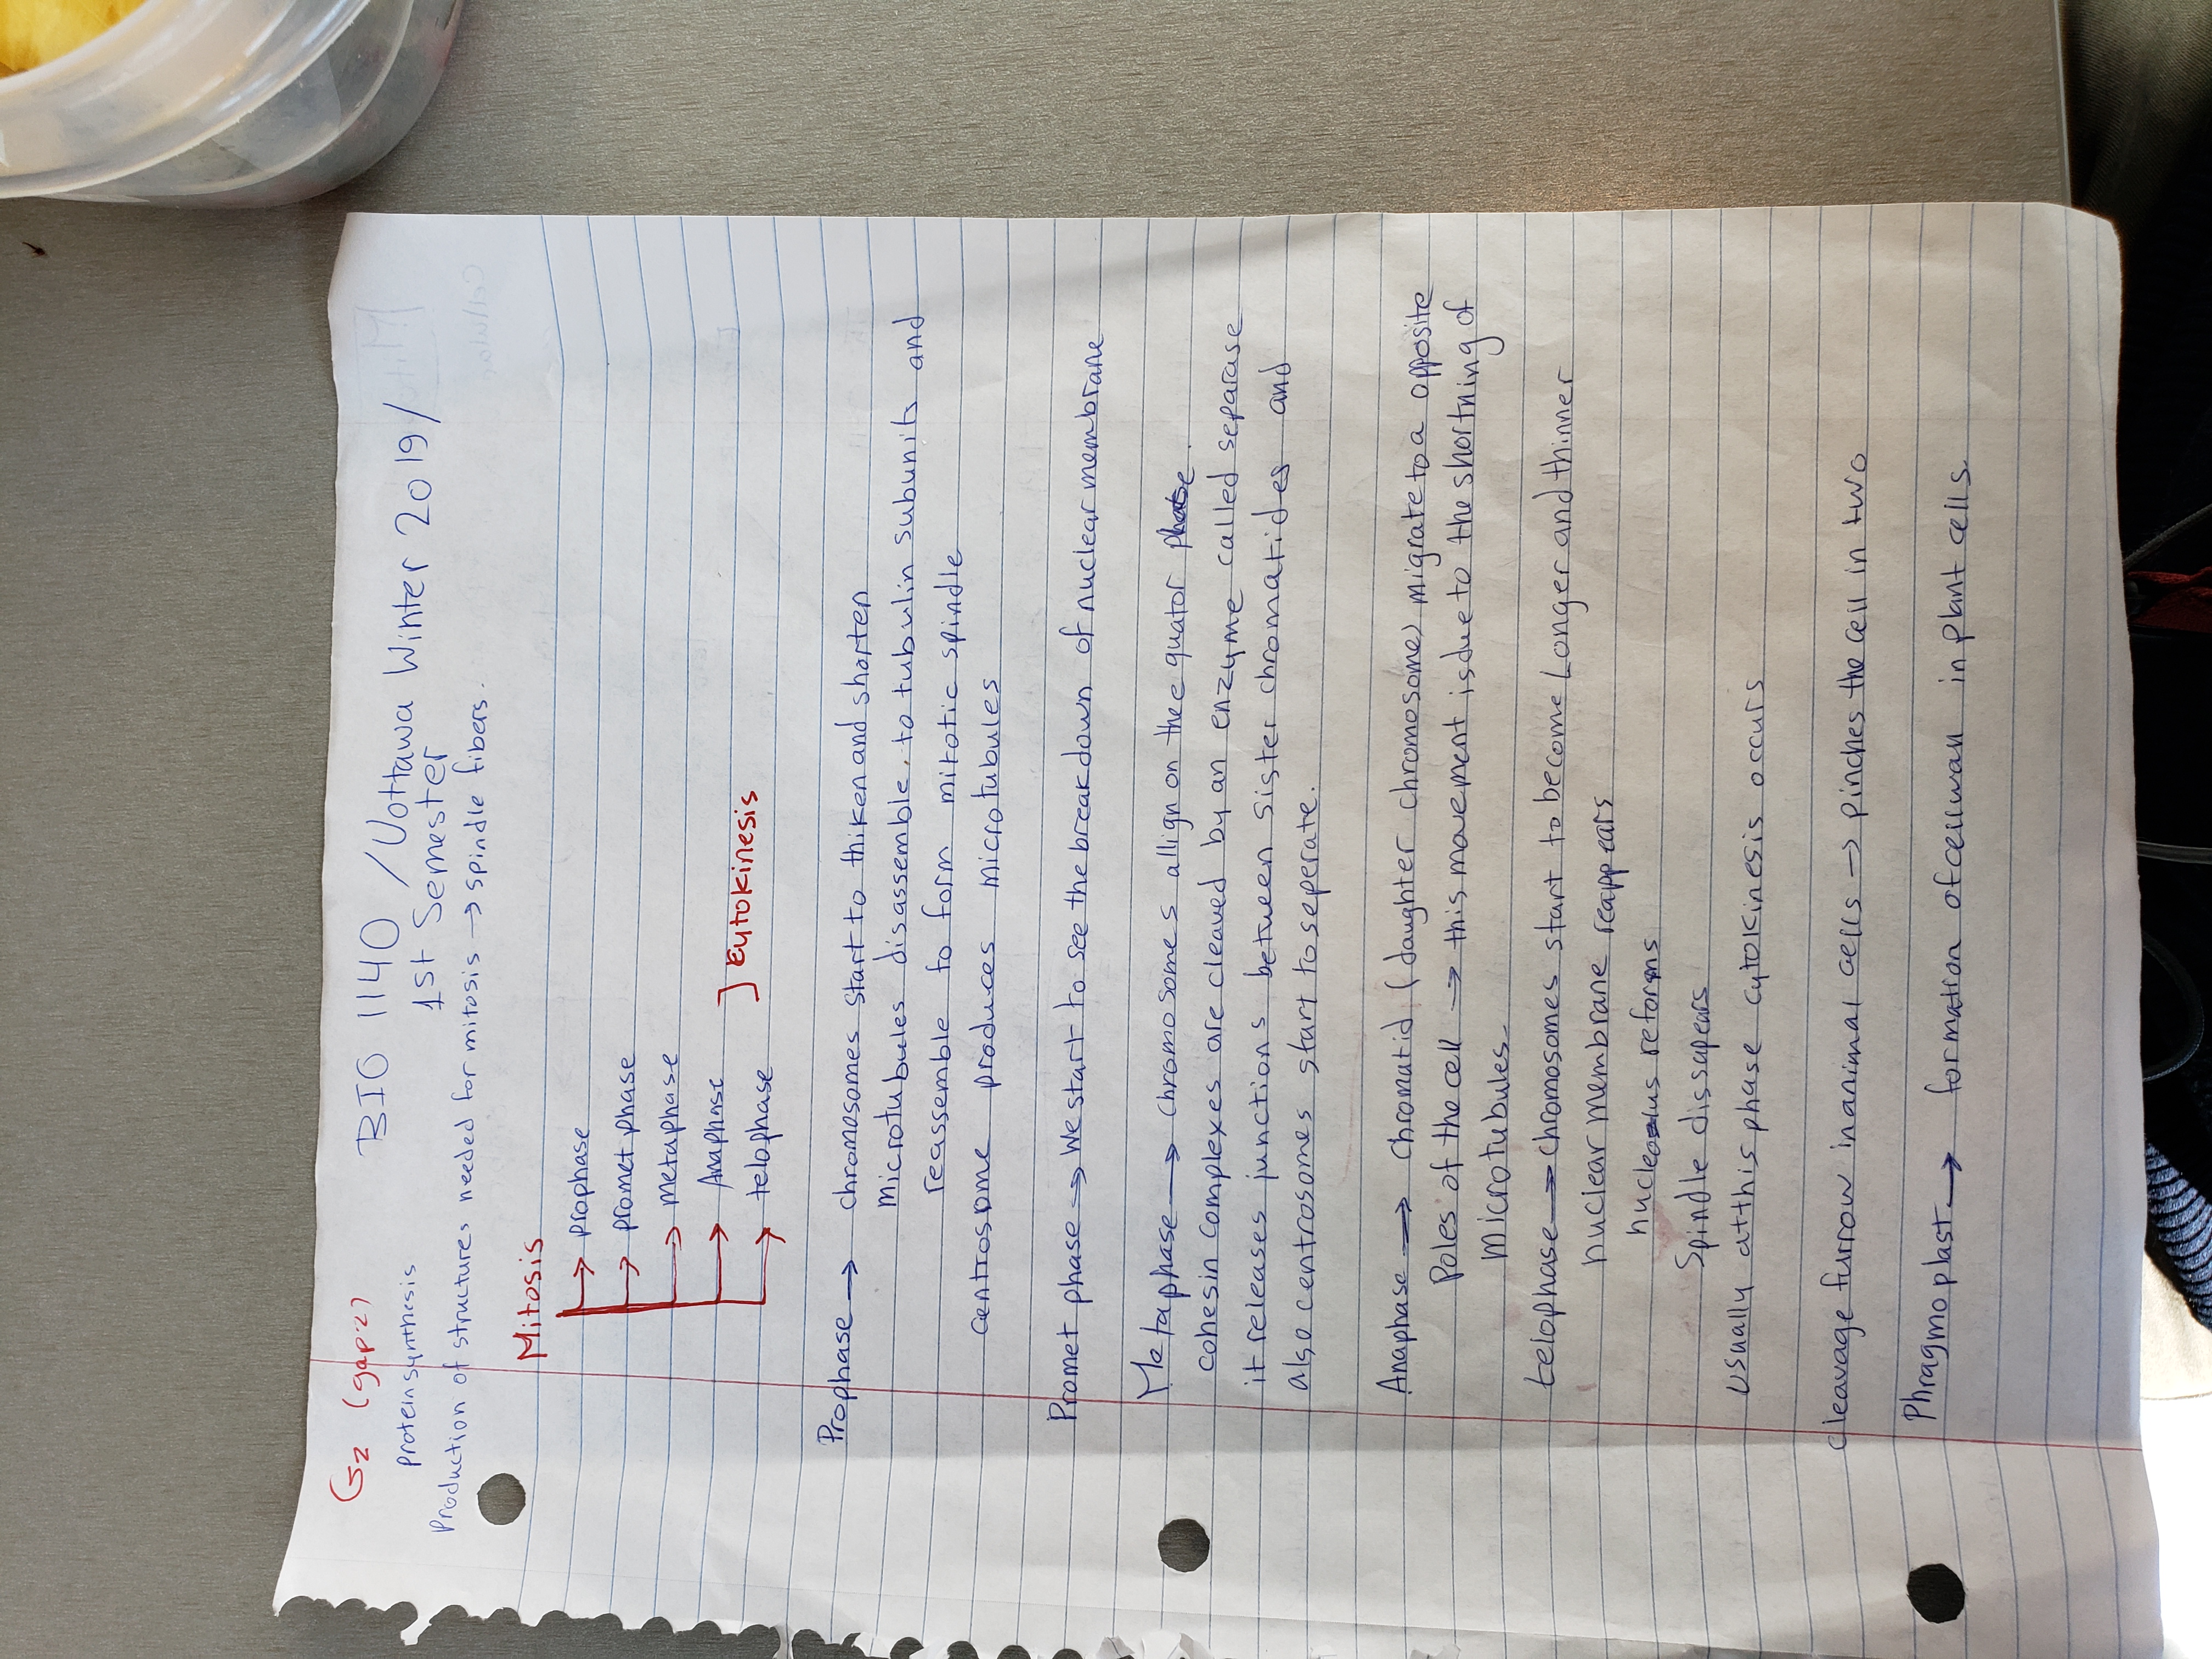 G2 (gap:2)
BIO 1140 / Uottawa Winter 2019/
1st Semester
Protein synthesis
Production of structures needed for mitosis → spindle fibers.
Mitosis
→ prophase
→ promet phase
→ metaphase
→ Anaphase
→ telophase
] cytokinesis
Prophase → chromosomes start to thiken and shorten
microtubules disassemble, to tubulin subunits and
reassemble to form mitotic spindle
centrosome produces microtubules
Promet phase → We start to see the breakdown of nuclear membrane
Metaphase → chromosomes allign on the equator
cohesin complexes are cleaved by an enzyme called separase
it releases junctions between sister chromatides and
also centrosomes start to seperate.
Anaphase → chromatid (daughter chromosome) migrate to a opposite
Poles of the cell → this movement is due to the shortning of
Microtubules.
telophase → chromosomes start to become Longer and thinner
nuclear membrane reappears
reforms
Spindle dissapears
usually at this phase cytokinesis occurs
cleavage furrow in animal cells → pinches the cell in two
Phragmoplast → formation of in plant cells